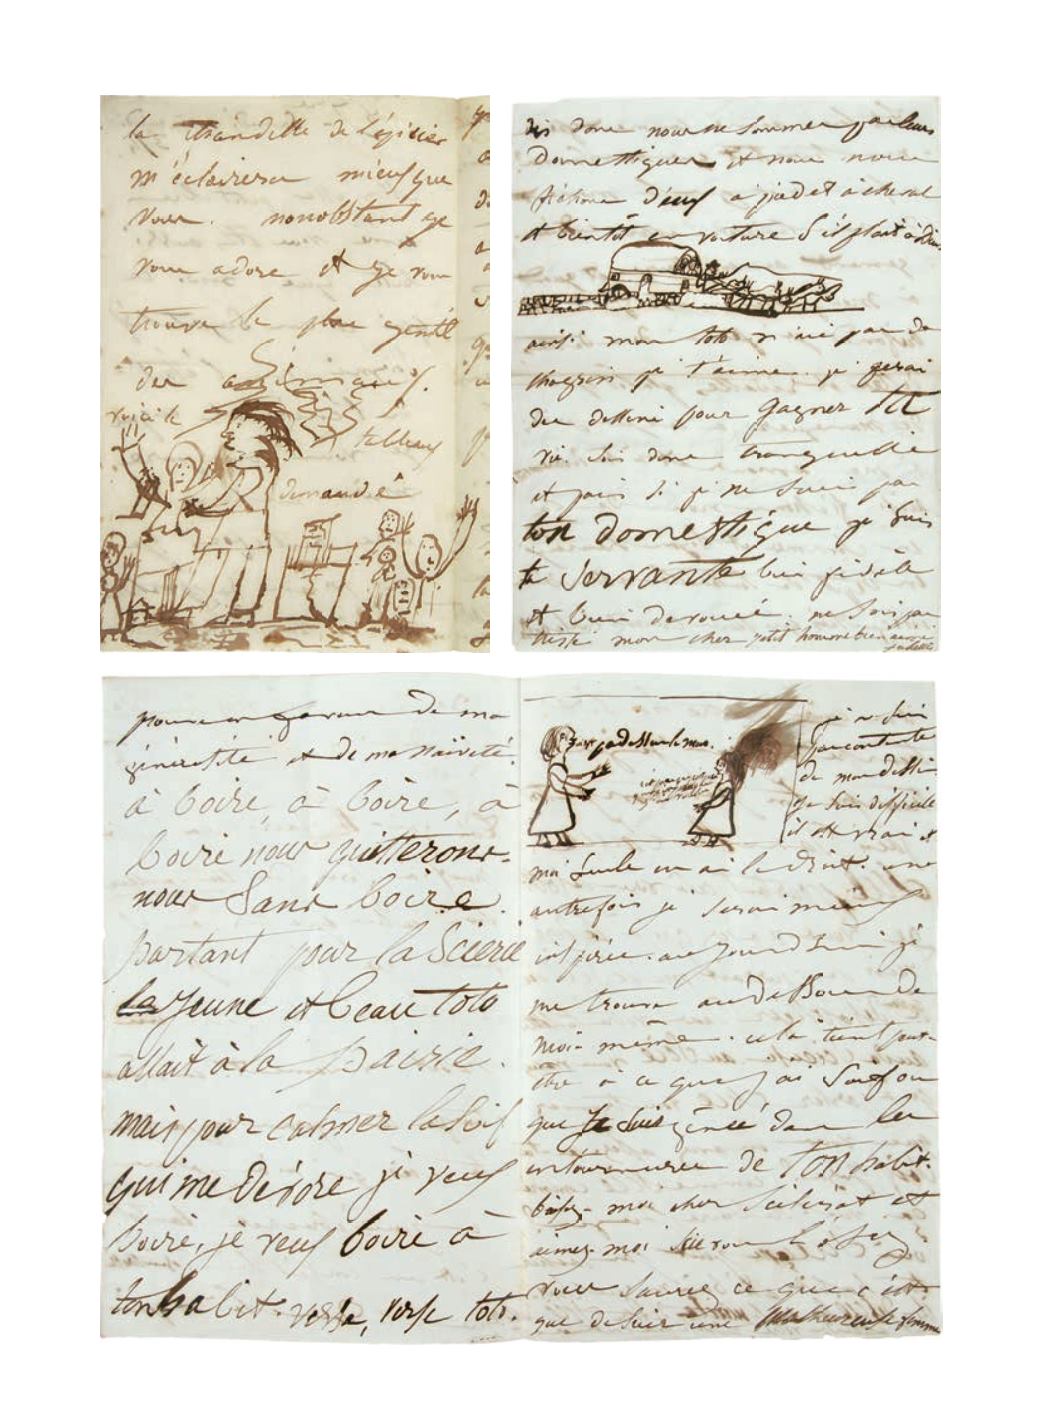 la chandelle de l'épicier
m'éclairera mieux que
vous. nonobstant je
vous adore et je vous
trouve le plus gentil
des
voici le
tableau
demandé
dis donc nous ne sommes pas leurs
domestiques et nous nous
fichons d'eux à pied et à cheval
et bientôt en voiture s'il plaît à Dieu.
ainsi mon toto n'aie pas de
chagrin je t'aime. je ferai
des dessins pour gagner ta
vie. sois donc tranquille
et puis si je ne suis pas
ton domestique je suis
ta servante bien fidèle
et bien dévouée. ne sois pas
triste mon cher petit homme bien aimé
Juliette
pour en faveur de ma
générosité et de ma naïveté.
à boire, à boire, à
boire nous quitterons-
nous sans boire.
partant pour la Scierie
le jeune et beau toto
allait à la pairie.
mais pour calmer la soif
qui me dévore je veux
boire, je veux boire à
ton habit. verse, verse toto.
je ne suis
pas contente
de mon dessin
je suis difficile
il est vrai et
moi seule en ai le droit. une
autre fois je serai mieux
inspirée. aujourd'hui je
me trouve au dessous de
moi-même. cela tient peut-
être à ce que j'ai soif ou
que je suis gênée dans les
entournures de ton habit.
baisez-moi cher scélérat et
aimez-moi si vous l'osez,
vous saurez ce que c'est
que de une malheureuse femme